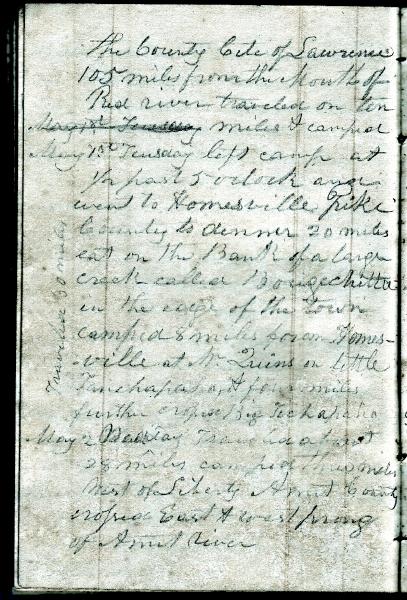 the County Cite of Lawrence
105 miles from the Mouth of
Red river traveled on ten
May 1st Tuesday miles & camped
May 1st Tuesday left camp at
1/2 past 5 oclock and
went to Homesville Pike
County to dinner 20 miles
eat on the Bank of a large
creek called Bougechitta
in the edge of the Town
camped 8 miles from Homes-
ville at Mr Quins on little
Tanchapaho & four miles
further crossed Big
May 2 Traveled about
28 miles camped three miles
West of Liberty Amit County
crossed East & west prong
of Amit river
Traveled 30 miles